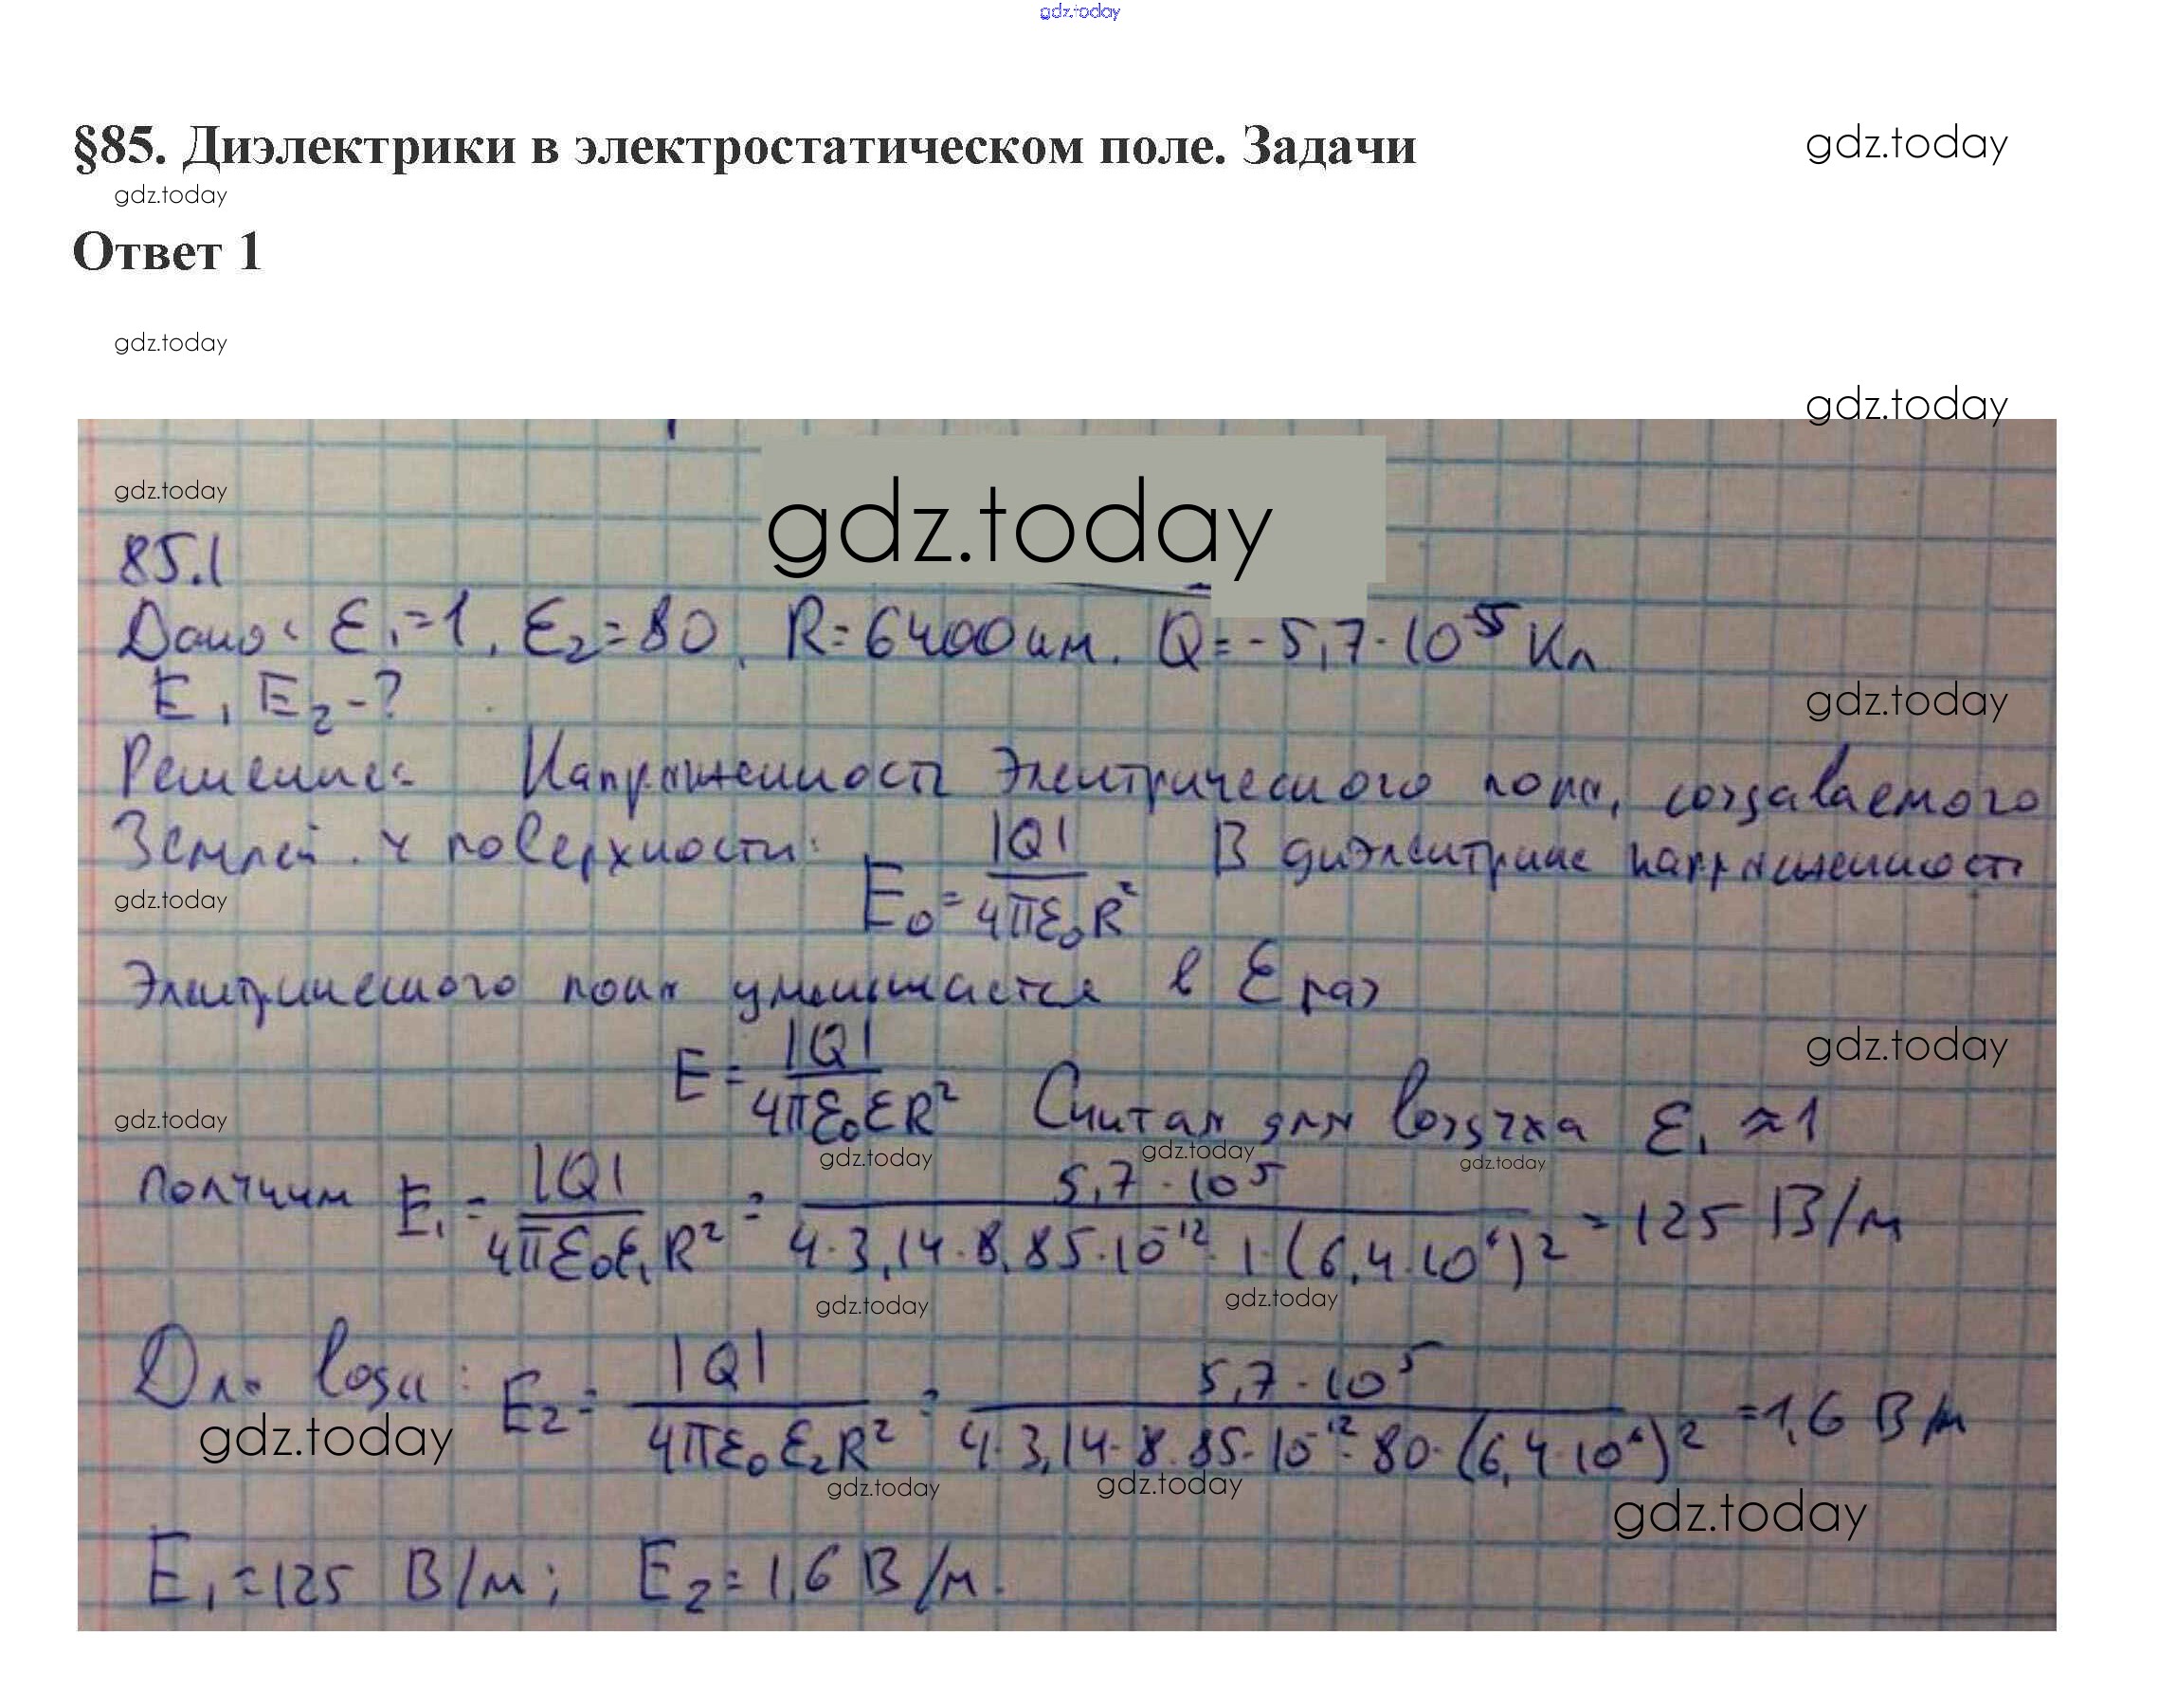 gdz.today
§85. Диэлектрики в электростатическом поле. Задачи gdz.today
gdz.today
Ответ 1
gdz.today
gdz.today
gdz.today
gdz.today
85.1
Дано: ε₁=1, ε₂=80, R=6400км. Q=-5,7·10⁵ Кл
E₁ E₂-?
gdz.today
Решение: Напряженность Электрического поля, создаваемого
Землей у поверхности: E₀=|Q|/4πε₀R² В диэлектрике напряженность
gdz.today
Электрического поля уменьшается в ε раз
gdz.today
E=|Q|/4πε₀εR² Считая для воздуха ε₁≈1
gdz.today
gdz.today gdz.today gdz.today
получим E₁=|Q|/4πε₀ε₁R²=5,7·10⁵/4·3,14·8,85·10⁻¹²·1·(6,4·10⁶)²=125 В/м
gdz.today gdz.today
Для воды: E₂=|Q|/4πε₀ε₂R²=5,7·10⁵/4·3,14·8.85·10⁻¹²·80·(6,4·10⁶)²=1,6 В/м
gdz.today
gdz.today gdz.today
gdz.today
E₁=125 В/м; E₂=1,6 В/м.